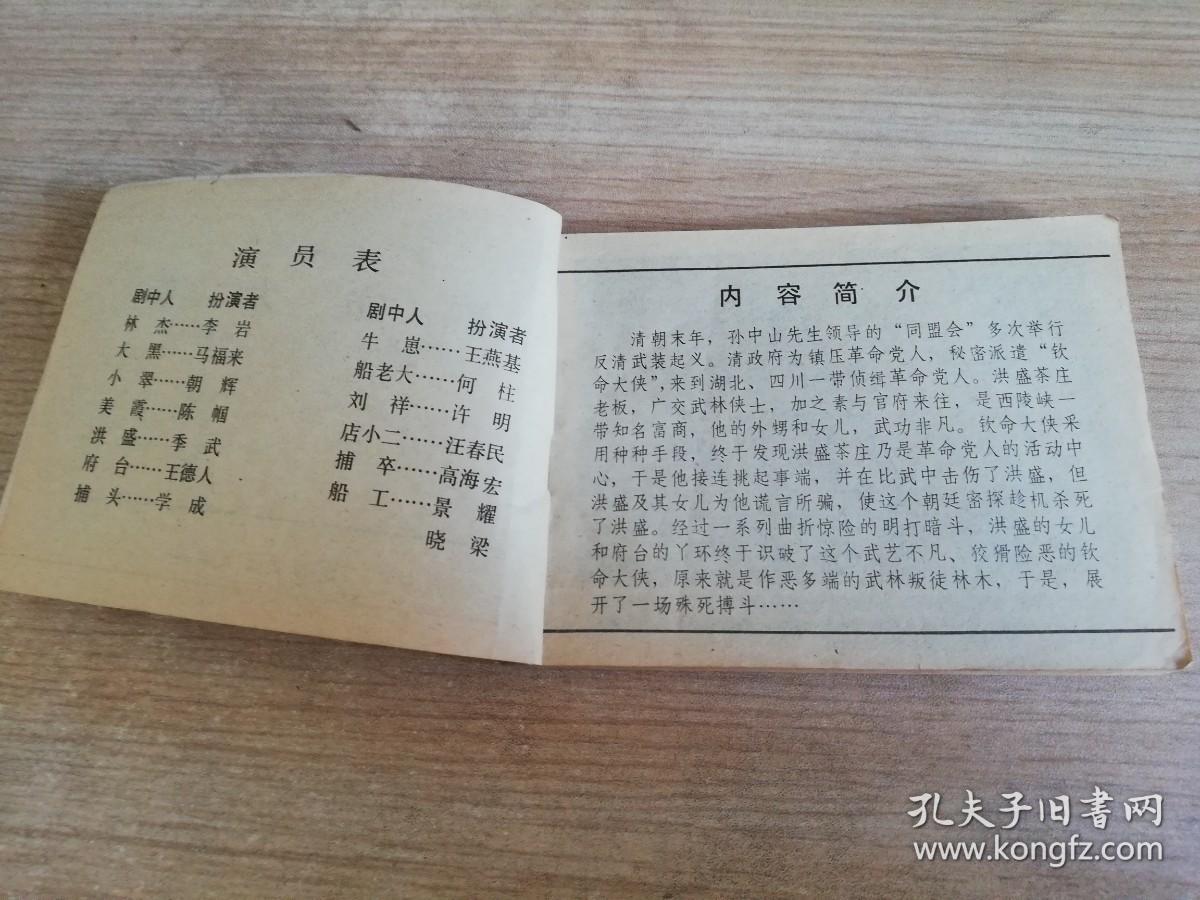 演员表
剧中人 扮演者
林杰……李岩
大黑……马福来
小翠……朝辉
美霞……陈帼
洪盛……季武
府台……王德人
捕头……学成
剧中人 扮演者
牛崽……王燕基
船老大……何柱
刘祥……许明
店小二……汪春民
捕卒……高海宏
船工……景耀
晓梁
内容简介
清朝末年，孙中山先生领导的“同盟会”多次举行
反清武装起义。清政府为镇压革命党人，秘密派遣“钦
命大侠”，来到湖北、四川一带侦缉革命党人。洪盛茶庄
老板，广交武林侠士，加之素与官府来往，是西陵峡一
带知名富商，他的外甥和女儿，武功非凡。钦命大侠采
用种种手段，终于发现洪盛茶庄乃是革命党人的活动中
心，于是他接连挑起事端，并在比武中击伤了洪盛，但
洪盛及其女儿为他谎言所骗，使这个朝廷密探趁机杀死
了洪盛。经过一系列曲折惊险的明打暗斗，洪盛的女儿
和府台的丫环终于识破了这个武艺不凡、狡猾险恶的钦
命大侠，原来就是作恶多端的武林叛徒林木，于是，展
开了一场殊死搏斗……
孔夫子旧书网
www.kongfz.com